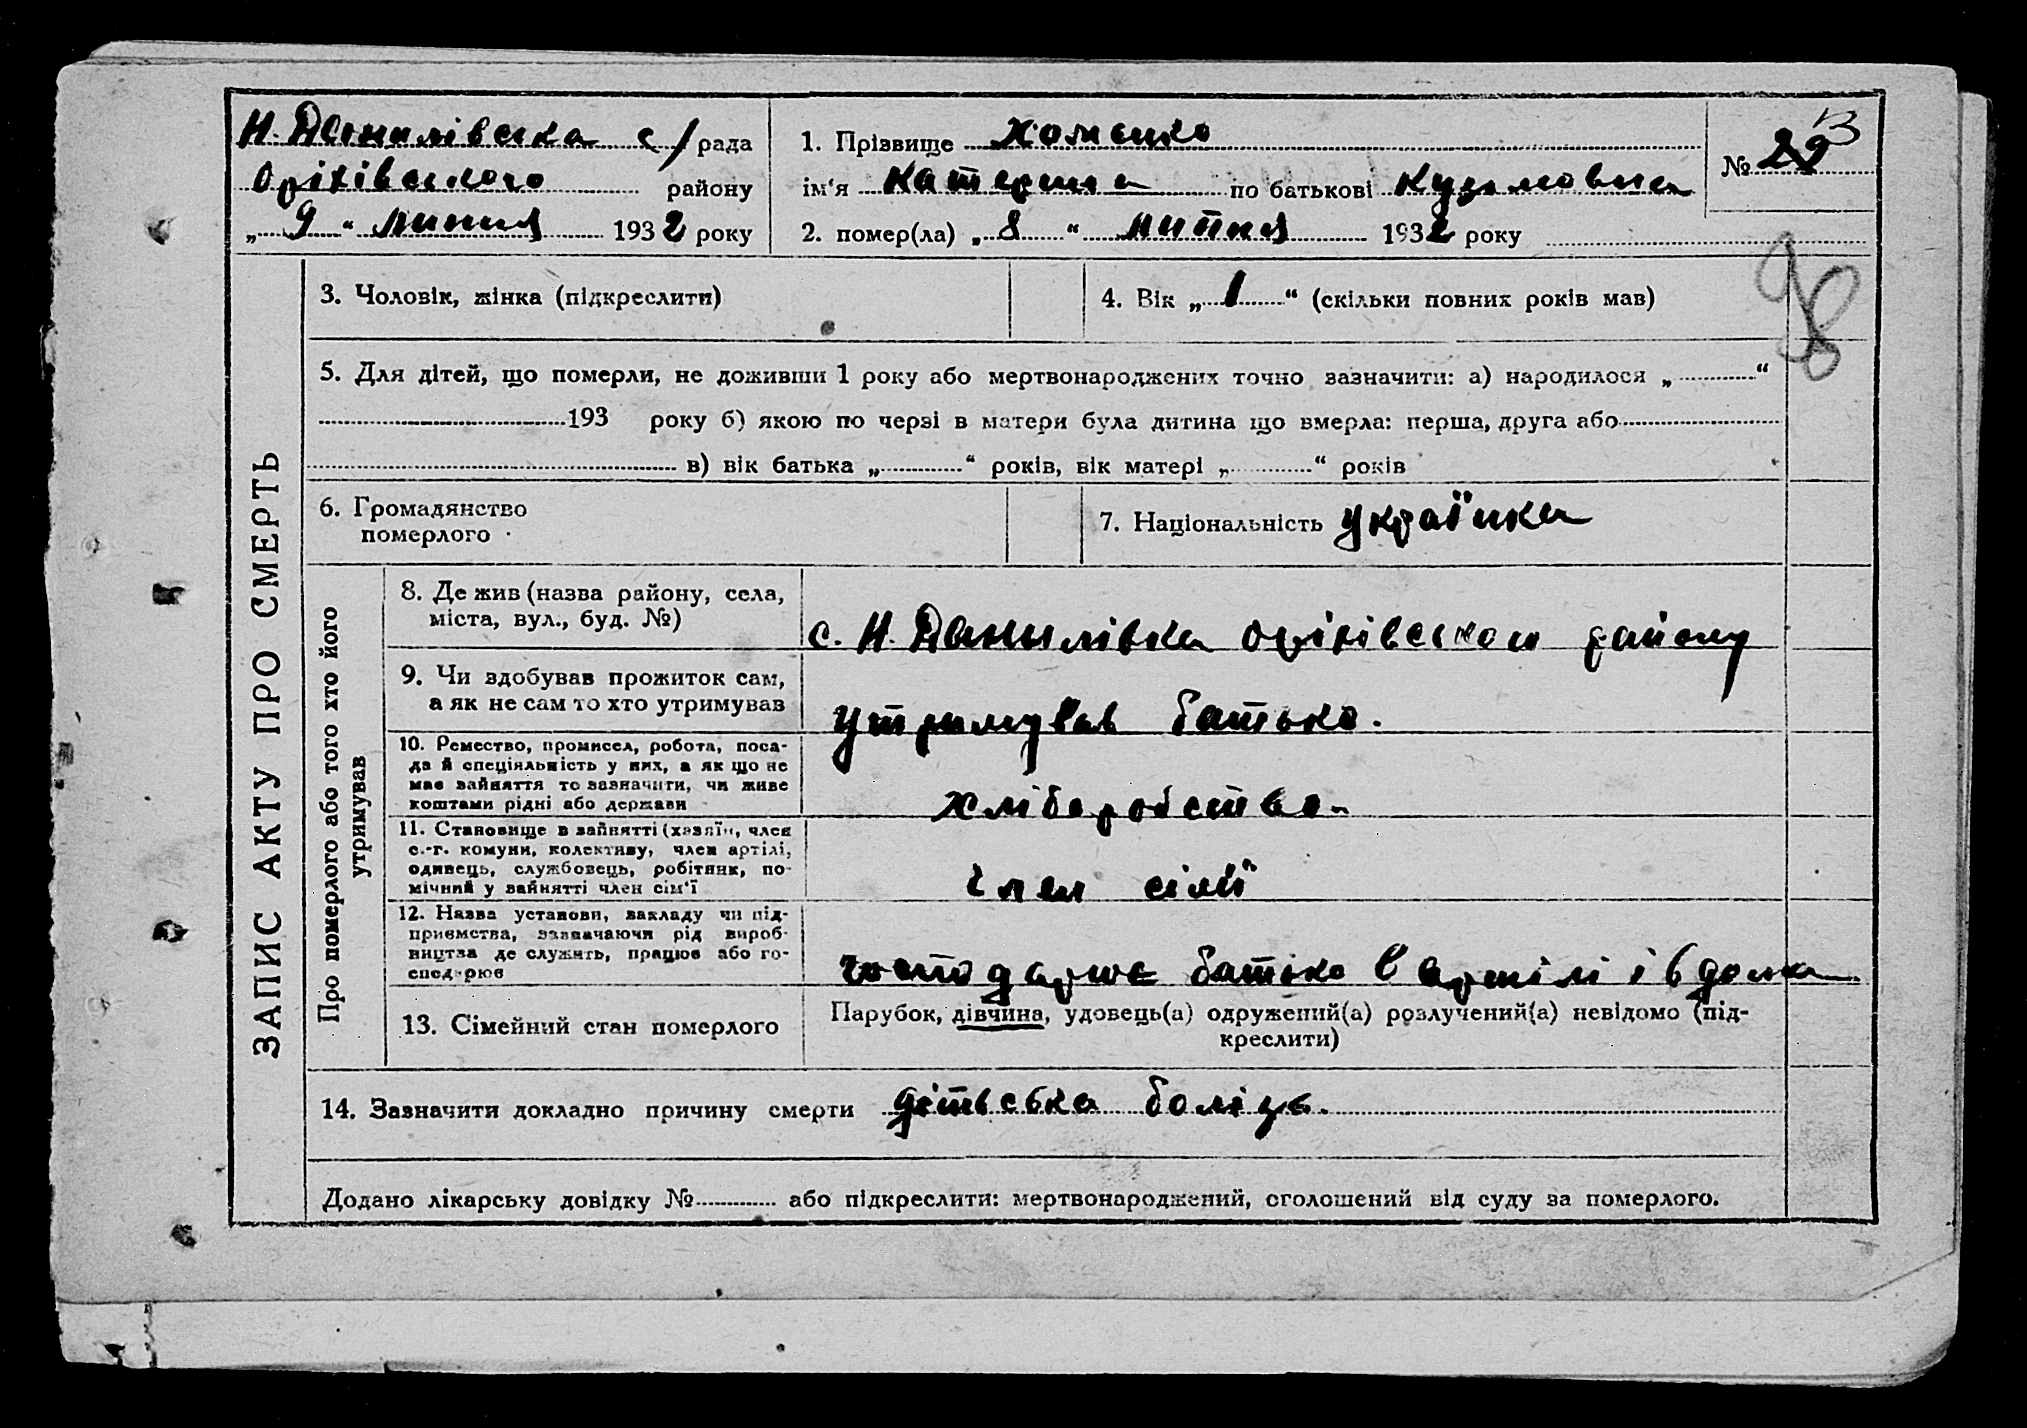 Н. Данилівська с/рада
Оріхівського району
„ 9 “ липня 1932 року
1. Прізвище Хоменко
ім'я Катерина по батькові Кузьмовна
2. помер(ла) „ 8 “ липня 1932 року
№ 29
98
ЗАПИС АКТУ ПРО СМЕРТЬ
3. Чоловік, жінка (підкреслити)
4. Вік „ 1 “ (скільки повних років мав)
5. Для дітей, що померли, не доживши 1 року або мертвонароджених точно зазначити: а) народилося „ “
193 року б) якою по черзі в матери була дитина що вмерла: перша, друга або
в) вік батька „ “ років, вік матері „ “ років
6. Громадянство
померлого
7. Національність українка
Про померлого або того хто його
утримував
8. Де жив (назва району, села,
міста, вул., буд. №)
с. Н. Данилівка оріхівського району
9. Чи здобував прожиток сам,
а як не сам то хто утримував
утримував батько.
10. Ремество, промисел, робота, поса-
да й спеціяльність у них, а як що не
має зайняття то зазначити, чи живе
коштами рідні або держави
хліборобство
11. Становище в зайнятті (хазяїн, член
с.-г. комуни, колективу, член артілі,
одинець, службовець, робітник, по-
мічний у зайнятті член сім'ї
член сім'ї
12. Назва установи, закладу чи під-
приємства, зазначаючи рід вироб-
ництва де служить, працює або го-
сподарює
господарює батько в артілі і вдома
13. Сімейний стан померлого
Парубок, дівчина, удовець(а) одружений(а) розлучений(а) невідомо (під-
креслити)
14. Зазначити докладно причину смерти дітвська болізь.
Додано лікарську довідку № або підкреслити: мертвонароджений, оголошений від суду за померлого.